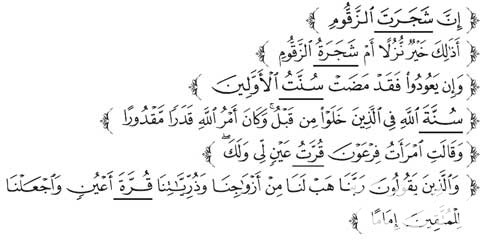 ﴿ إِنَّ شَجَرَتَ الزَّقُّومِ ﴾
﴿ أَذَٰلِكَ خَيْرٌ نُّزُلًا أَمْ شَجَرَةُ الزَّقُّومِ ﴾
﴿ وَإِن يَعُودُوا۟ فَقَدْ مَضَتْ سُنَّتُ الْأَوَّلِينَ ﴾
﴿ سُنَّةَ اللَّهِ فِي الَّذِينَ خَلَوْا۟ مِن قَبْلُ ۚ وَكَانَ أَمْرُ اللَّهِ قَدَرًا مَّقْدُورًا ﴾
﴿ وَقَالَتِ امْرَأَتُ فِرْعَوْنَ قُرَّتُ عَيْنٍ لِّي وَلَكَ ۖ ﴾
﴿ وَالَّذِينَ يَقُولُونَ رَبَّنَا هَبْ لَنَا مِنْ أَزْوَاجِنَا وَذُرِّيَّاتِنَا قُرَّةَ أَعْيُنٍ وَاجْعَلْنَا
لِلْمُتَّقِينَ إِمَامًا ﴾